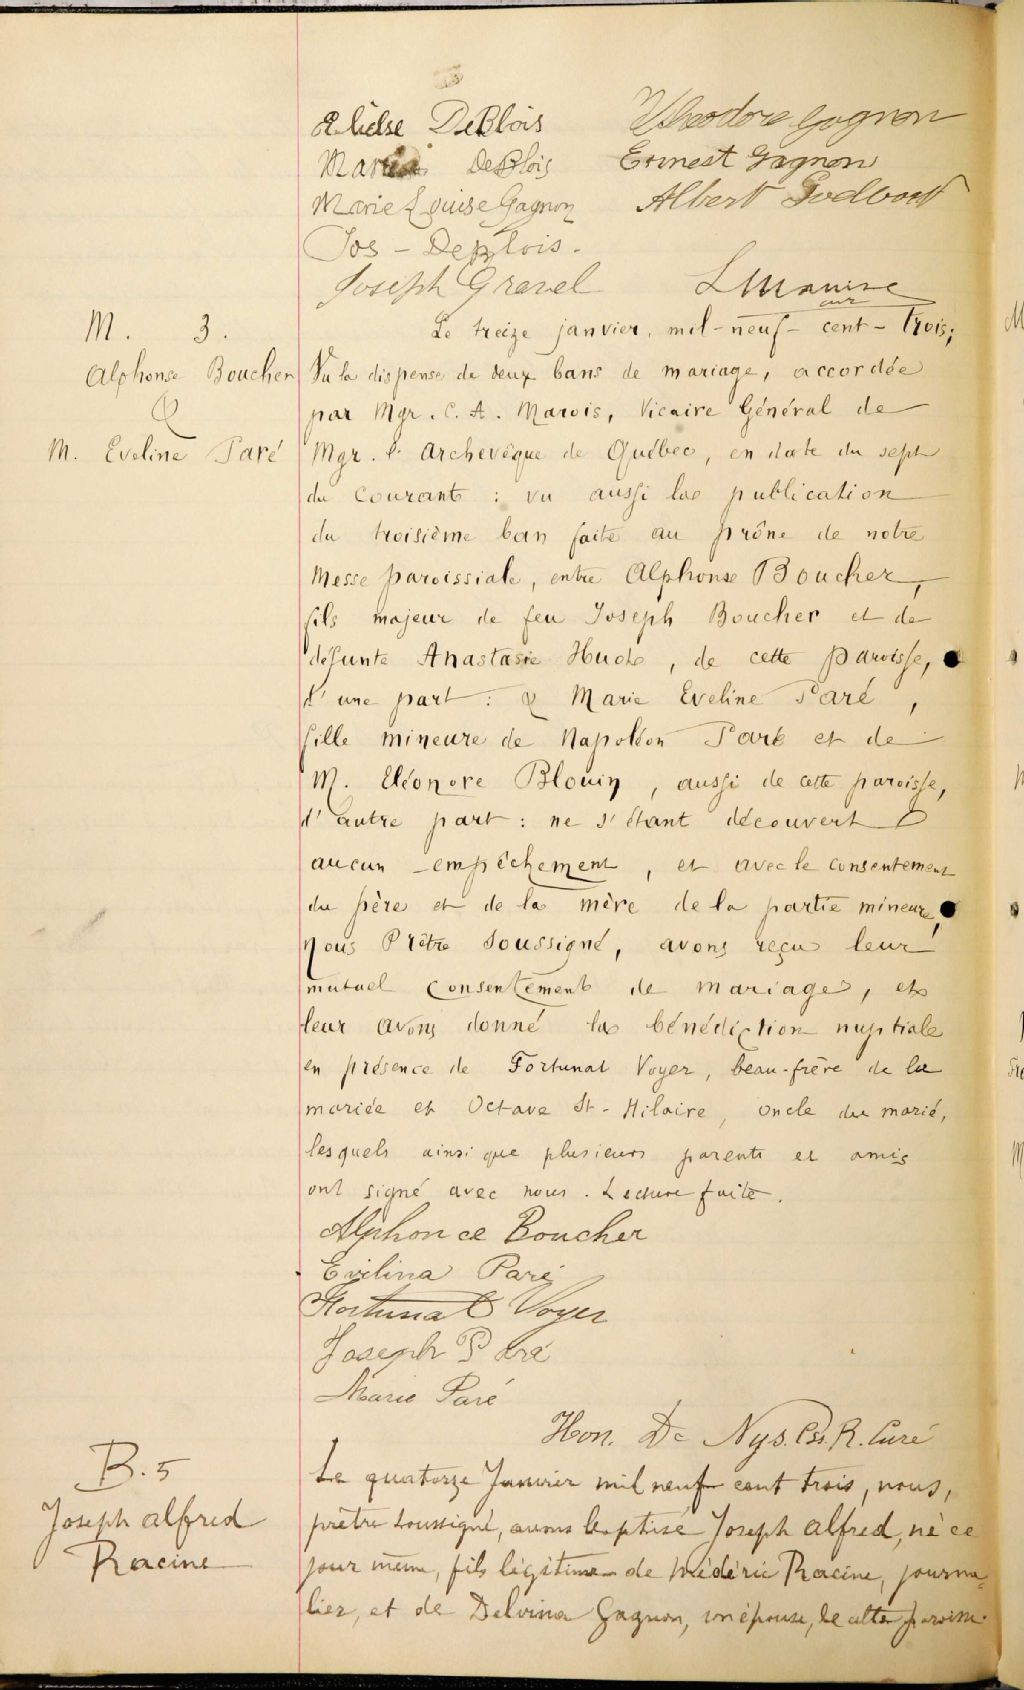 Elièse DeBlois Theodore Gagnon
Maria DeBlois Ernest Gagnon
Marie Louise Gagnon Albert Godbout
Jos - DeBlois -
Joseph Gravel
M. 3.
Alphonse Boucher
&
M. Eveline Paré
Le treize janvier, mil-neuf-cent-trois;
Vu la dispense de deux bans de mariage, accordée
par Mgr. C. A. Marois, Vicaire Général de
Mgr. l'Archevêque de Québec, en date du sept
du courant : vu aussi la publication
du troisième ban faite au prône de notre
Messe paroissiale, entre Alphonse Boucher,
fils majeur de feu Joseph Boucher et de
défunte Anastasie Hudo, de cette paroisse,
d'une part : & Marie Eveline Paré,
fille mineure de Napoléon Paré et de
M. Eléonore Blouin, aussi de cette paroisse,
d'autre part : ne s'étant découvert
aucun empêchement, et avec le consentement
du père et de la mère de la partie mineure,
Nous Prêtre Soussigné, avons reçu leur
mutuel consentement de mariage, et
leur avons donné la bénédiction nuptiale
en présence de Fortunat Voyer, beau-frère de la
mariée et Octave St-Hilaire, oncle du marié,
lesquels ainsi que plusieurs parents et amis
ont signé avec nous. Lecture faite.
Alphonce Boucher
Evilina Paré
Fortunat Voyer
Joseph Paré
Marie Paré
Hon. De Nys. CSs. R. Curé
B. 5
Joseph alfred
Racine
Le quatorze Janvier mil neuf cent trois, nous,
prêtre soussigné, avons baptisé Joseph alfred, né ce
jour même, fils légitime de Médéric Racine, journa-
lier, et de Delvina Gagnon, son épouse, de cette paroisse.